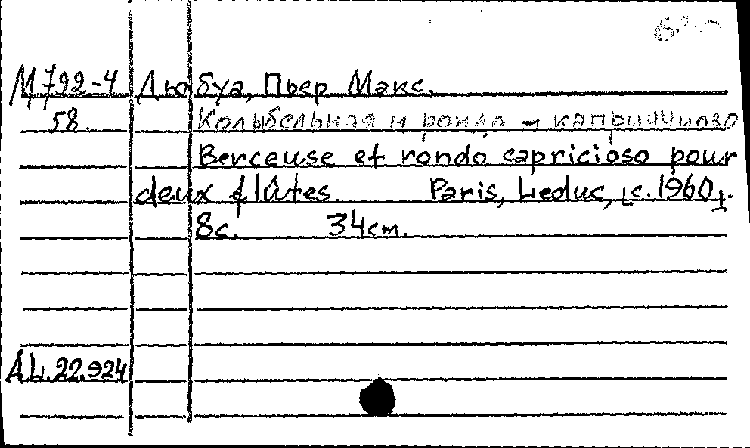 М 792-4 Дюбуа, Пьер Макс.
58 Колыбельная и рондо-каприччиозо
Berceuse et rondo capricioso pour
deux flûtes. Paris, Leduc, [c. 1960].
8с. 34см.
AL.22.924